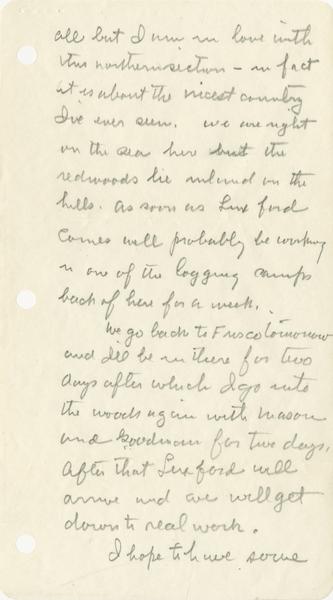 all but I am in love with
this northern section – in fact
it is about the nicest country
I've ever seen. We are right
on the sea here but the
redwoods lie inland on the
hills. As soon as Luxford
comes will probably be working
in one of the logging camps
back of here for a week.
We go back to Frisco tomorrow
and I'll be in there for two
days after which I go into
the woods again with Mason
and Goodman for two days.
After that Luxford will
arrive and we will get
down to real work.
I hope to have some